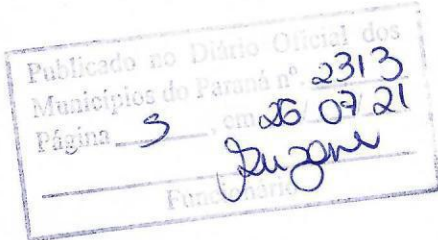 Publicado no Diário Oficial dos
Municípios do Paraná nº. 2313
Página 3, em 26/07/21
Funcionário